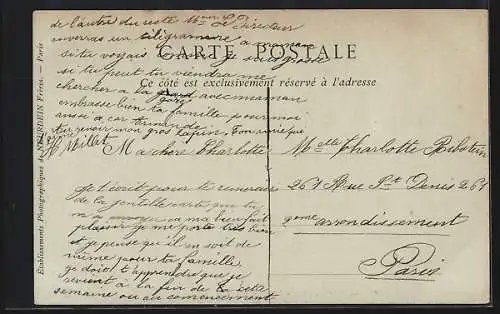 de l'autre du reste Mme le Directeur
enverras un télégramme à
si tu voyais
si tu peut tu viendra me
chercher à la gare avec maman
embrasse bien ta famille pour moi
aussi à
revoir mon gros lapin. Ton amie que
H Millat
CARTE POSTALE
Ce côté est exclusivement réservé à l'adresse
Établissements Photographiques de NEURDEIN Frères. — Paris
Ma chère Charlotte
Je t'écrit pour te remercier
de la gentille carte que tu
m'a envoyer ça ma bien fait
plaisir je me porte très bien
et je pense qu'il en soit de
même pour ta famille
je doit t'apprendre que je
revient à la fin de la sette
semaine ou au commencement
Melle Charlotte
261 Rue St Denis 261
arrondissement
Paris